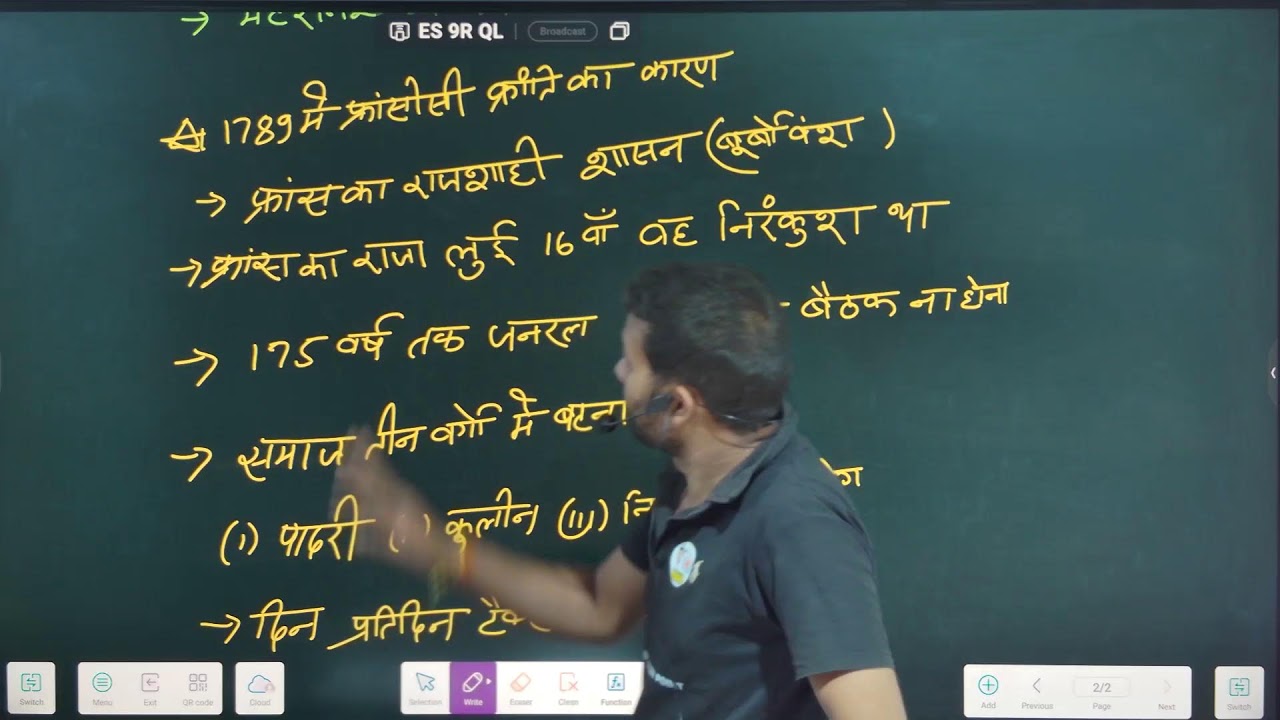 →
ES 9R QL | Broadcast
1789 में फ्रांसीसी क्रांति का कारण
→ फ्रांस का राजशाही शासन (बूर्बो वंश )
→ फ्रांस का राजा लुई 16 वाँ वह निरंकुश था
→ 175 वर्ष तक जनरल - बैठक ना होना
→ समाज तीन वर्गो में बटना
(i) पादरी ) कूलीन (iii) नि
→ दिन प्रतिदिन
Switch Menu Exit QR code Cloud Selection Write Eraser Clean Function Add Previous 2/2 Page Next Switch